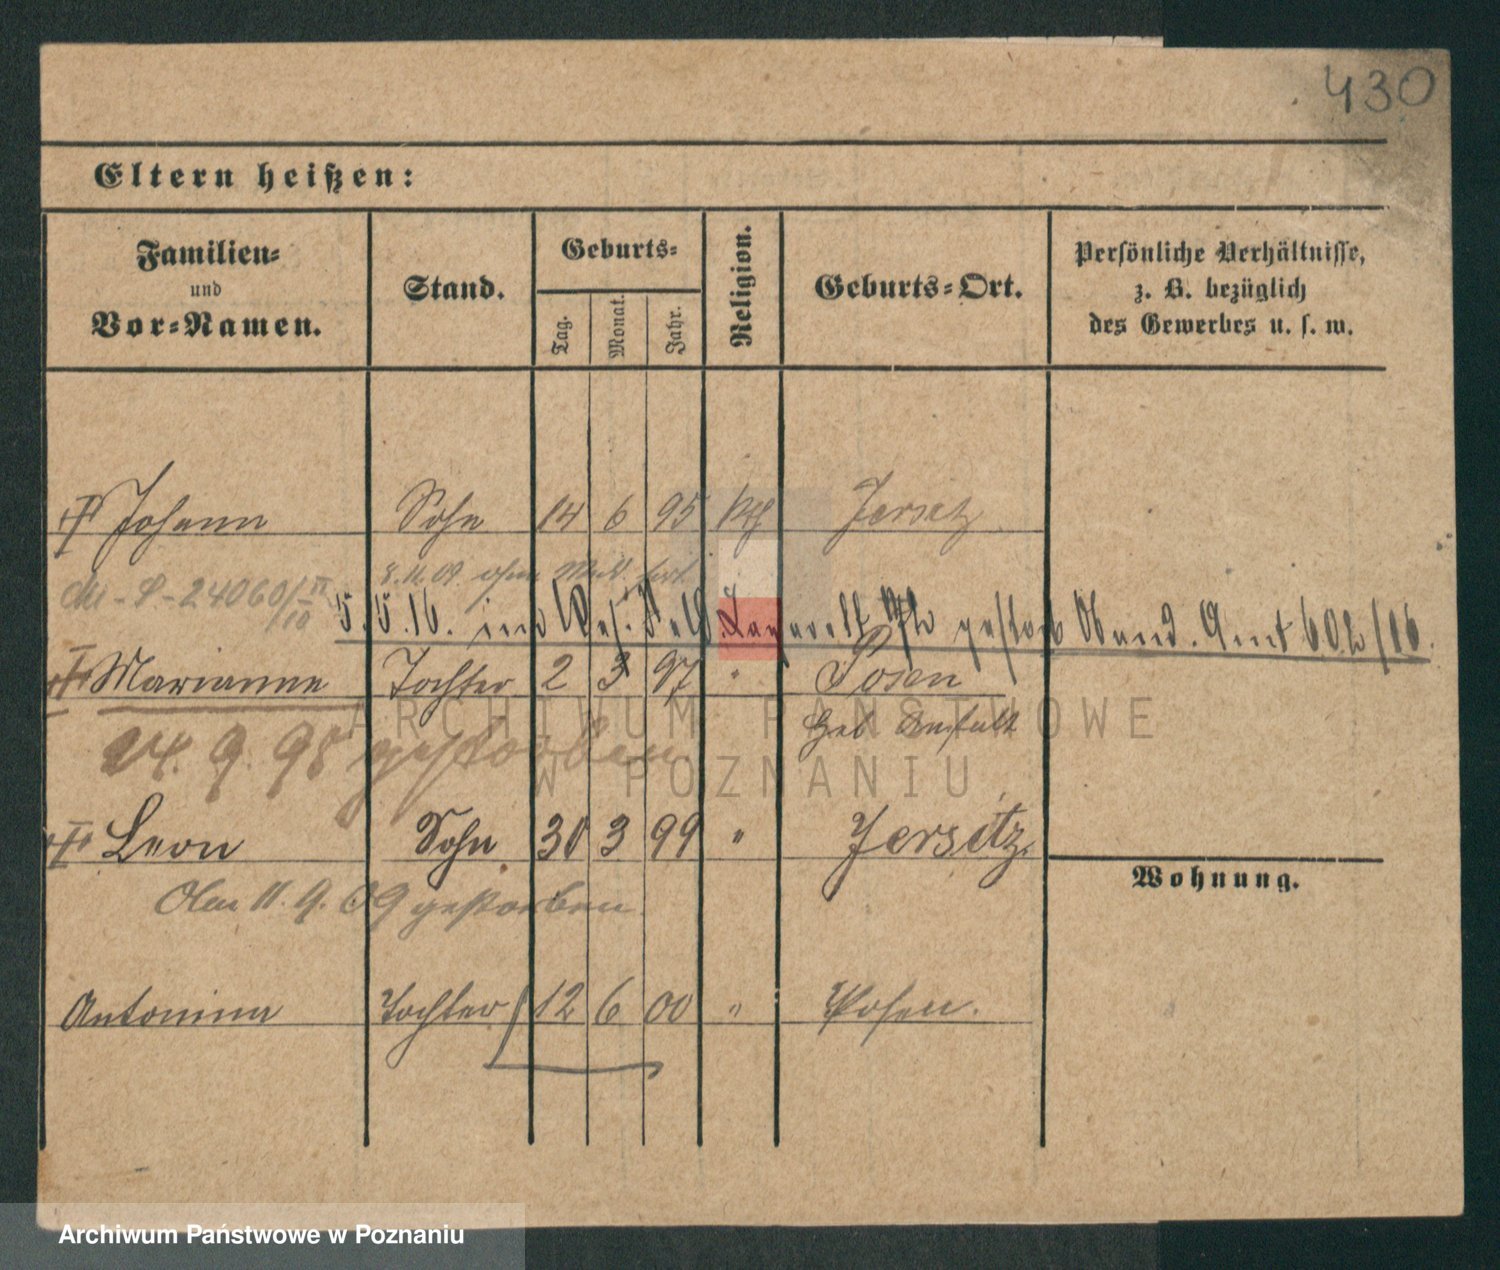 430
Eltern heißen:
Familien-
und
Vor-Namen.
Stand.
Geburts-
Tag.
Monat.
Jahr.
Religion.
Geburts-Ort.
Persönliche Verhältnisse,
z. B. bezüglich
des Gewerbes u. s. w.
Johann Sohn 14 6 95 kth Jersitz
8.11.09. ohne
24060/II
5.5.16. im Feld Lazarett gestorb Stand. Amt 602/16.
Marianne Tochter 2 3 97 " Posen
Geb Anstalt
24. 9. 98 gestorben
ARCHIWUM PAŃSTWOWE
W POZNANIU
Leon Sohn 30 3 99 " Jersitz.
Wohnung.
Am 11. 9. 09 gestorben.
Antonina Tochter 12 6 00 " Posen.
Archiwum Państwowe w Poznaniu